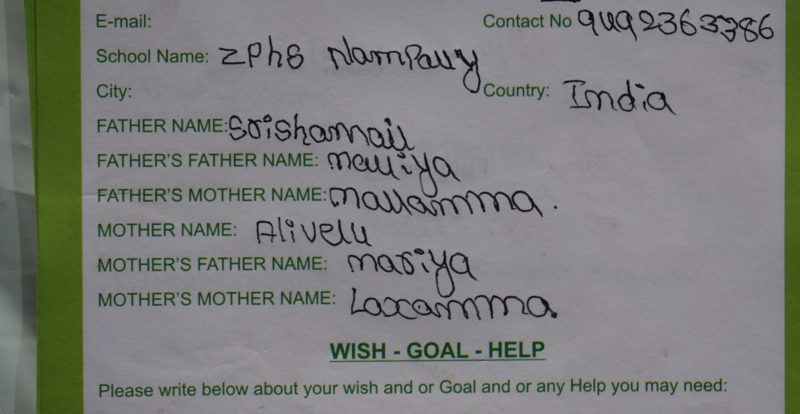 E-mail: Contact No 9492363386
School Name: ZPHS Nampally
City: Country: India
FATHER NAME: Srishamail
FATHER'S FATHER NAME: malliya
FATHER'S MOTHER NAME: mallamma.
MOTHER NAME: Alivelu
MOTHER'S FATHER NAME: mariya
MOTHER'S MOTHER NAME: Laxamma.
WISH - GOAL - HELP
Please write below about your wish and or Goal and or any Help you may need: